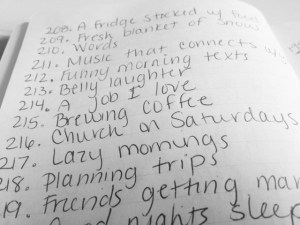 208. A fridge stocked w/
209. Fresh blanket of snow
210. Words
211. Music that connects
212. Funny morning texts
213. Belly laughter
214. A job I love
215. Brewing coffee
216. Church on Saturdays
217. Lazy mornings
218. Planning trips
219. Friends getting mar
nights sleep